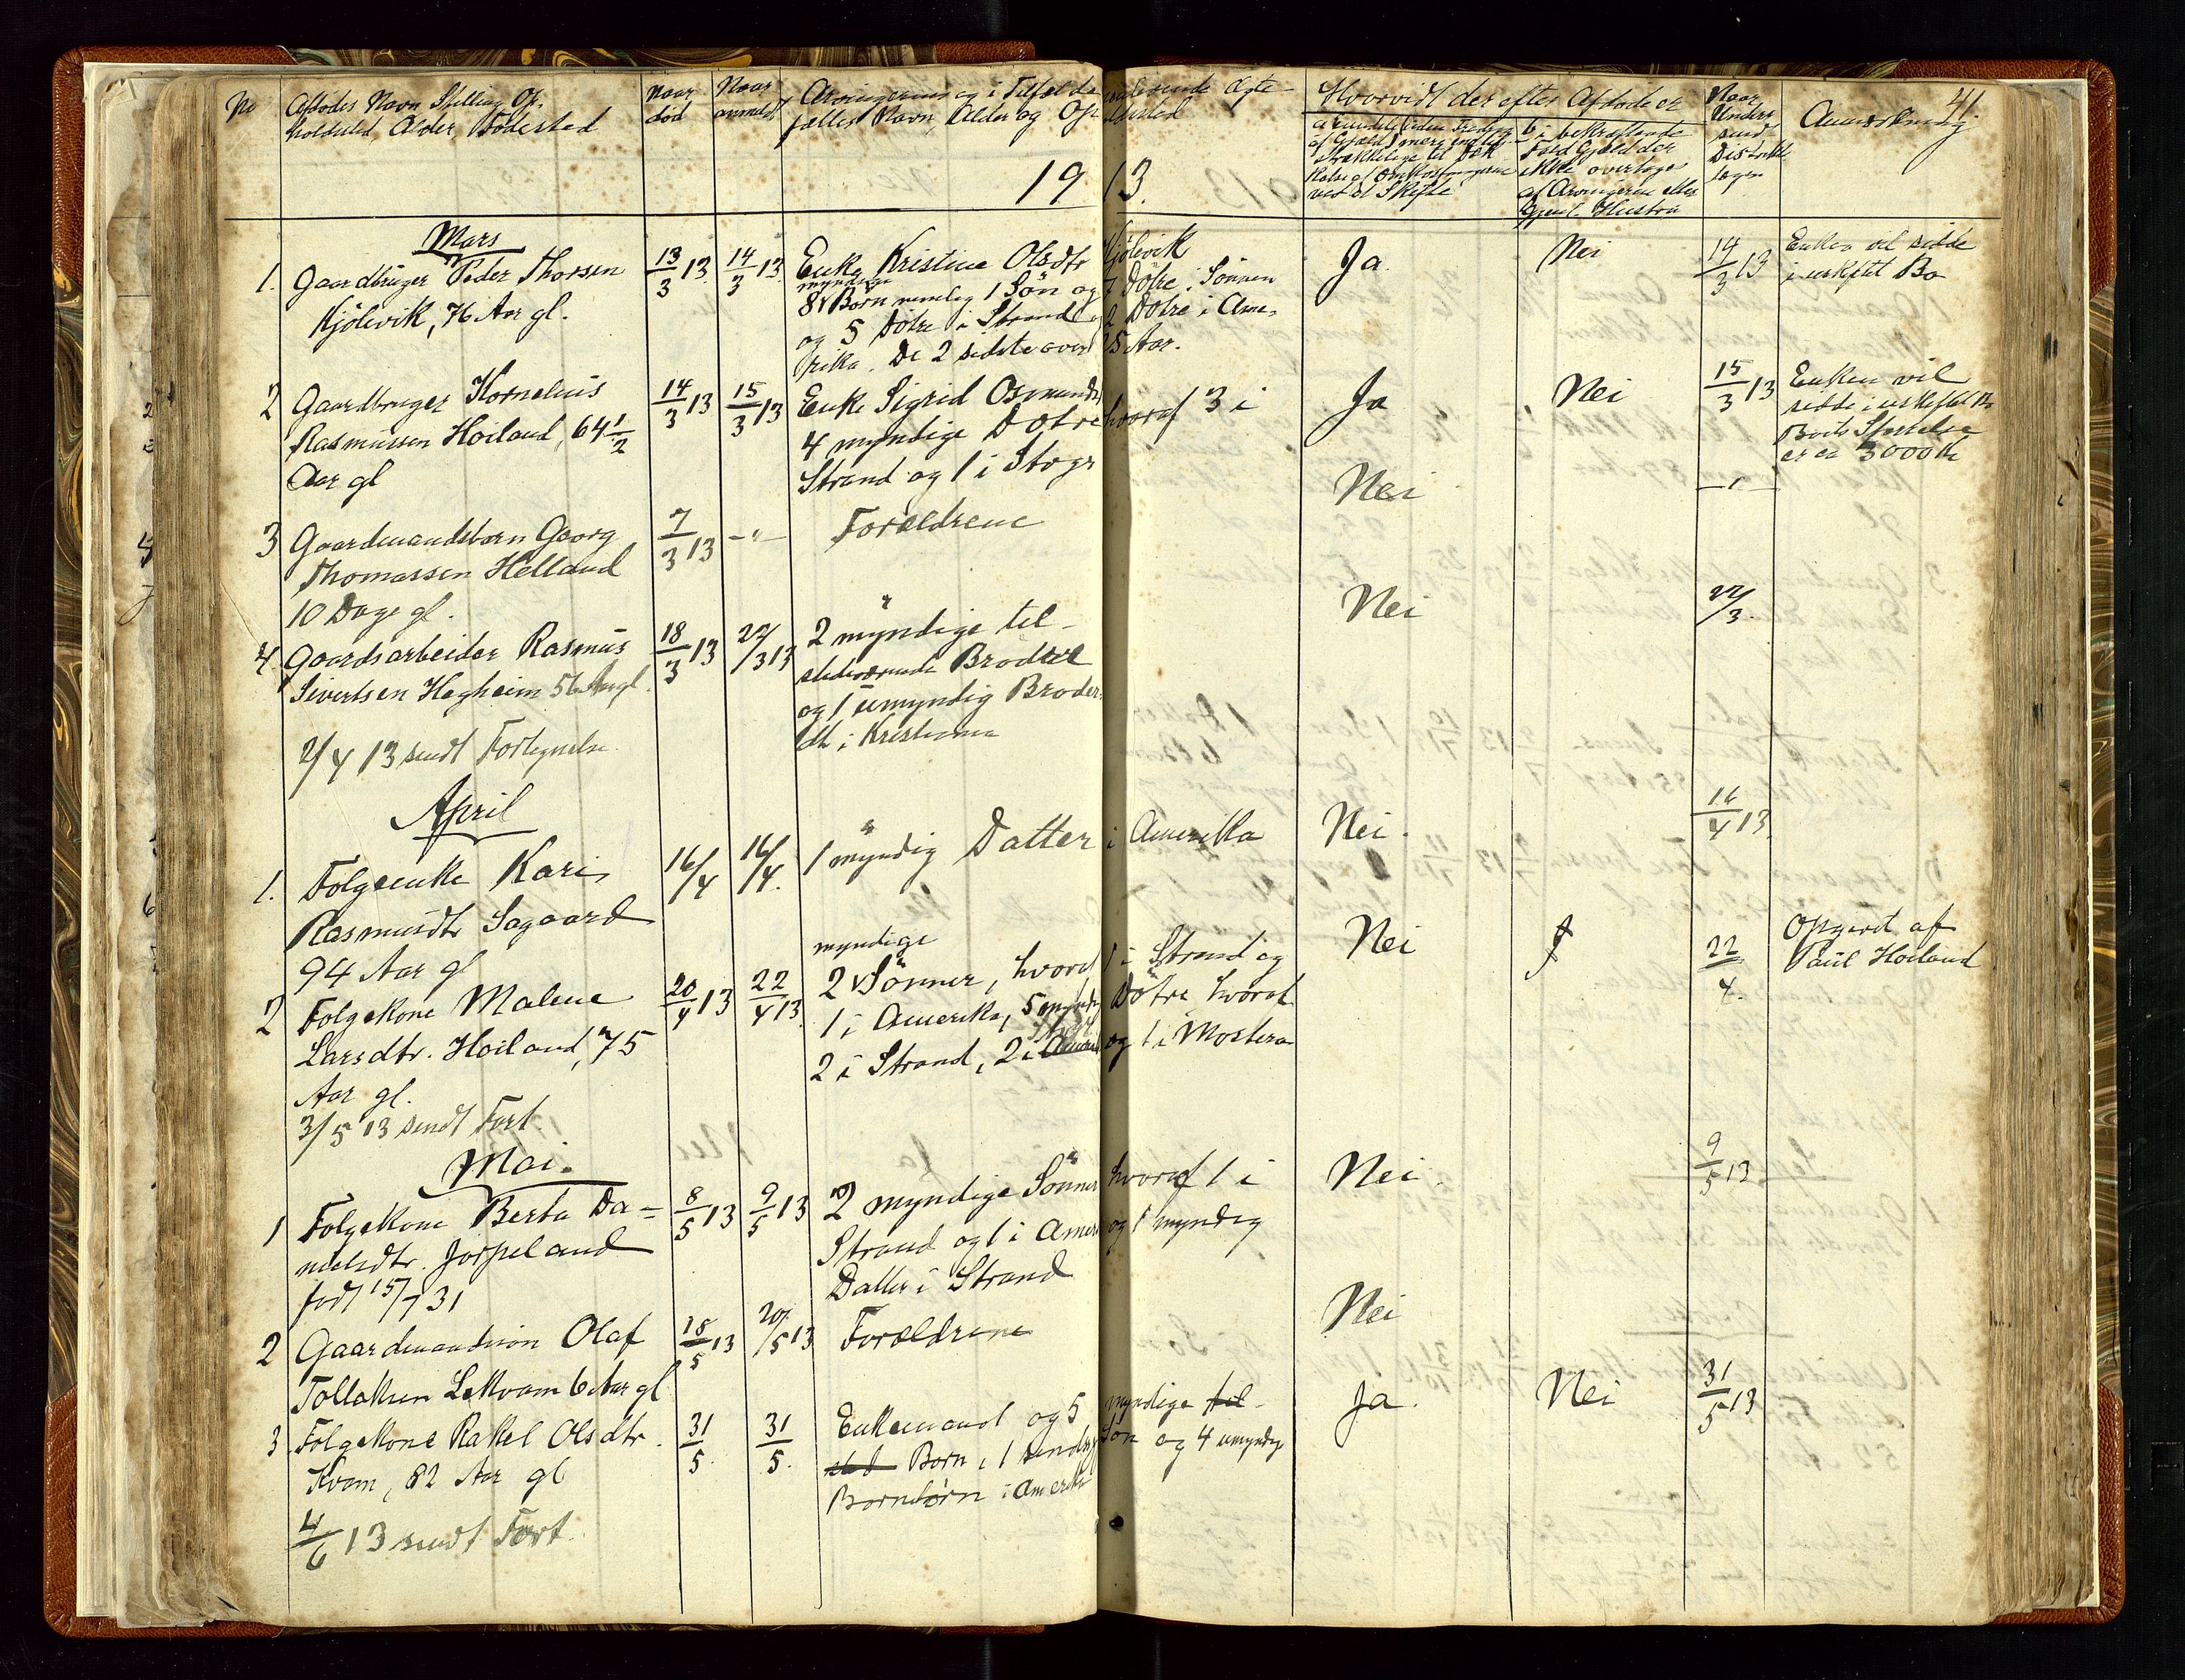 41.
No
Afdødes Navn Stilling Op-
holdssted, Alder, Fødested
Naar
død
Naar
anmeldt
Arvingernes og i Tilfælde
fælles Navn, Alder og Op
Ægte-
Hvorvidt der efter Afdøde er
ved et Skifte
b i bekræftende
Fald Gjæld der
ikke overtages
af Arvingerne eller
Hustru
Naar
Anmærkning
1913.
Mars
1. Gaardbruger Peder Thorsen 13/3 13 14/3 13 Enke Kristine Olsdtr Kjölevik Ja. Nei 14/3 13 Enken vil sidde
Kjölevik, 76 Aar gl. myndige
8 Børn nemlig 1 Søn og 7 Døtre. Sønnen i uskiftet Bo
og 5 Døtre i Strand og 2 Døtre i Ame-
rika. De 2 sidste over 25 Aar.
2 Gaardbruger Kornelius 14/3 13 15/3 13 Enke Sigrid Osmundsd Ja Nei 15/3 13 Enken vil
Rasmussen Hoiland, 64 1/2 4 myndige Døtre hvoraf 3 i sidde i uskiftet Bo
Aar gl Strand og 1 i Boets Størrelse
er ca 3000 Kr
3 Gaardmandsbarn Georg 7/3 13 -"- Forældrene Nei -"-
Thomassen Helland
10 Dage gl.
4 Gaardsarbeider Rasmus 18/3 13 22/3 13 2 myndige til- Nei 22/3.
Sivertsen Hegheim 56 Aar gl. stedeværende Brødre
og 1 umyndig Broder-
dt i Kristiania
2/4 13 sendt Fortegnelse
April
1. Folgeenke Kari 16/4 16/4. 1 myndig Datter i Amerika Nei. 16/4 13
Rasmusdtr Sagaard
94 Aar gl
2 Folgekone Malene 20/4 13 22/4 13 myndige
2 Sønner, hvoraf 1 i Strand og Nei 22/4. Opgivet af
Larsdtr. Hoiland, 75 1 i Amerika, 5 Døtre hvoraf Paul Hoiland
Aar gl. 2 i Strand, 2 i og 1 i Mosterø
3/5 13 sendt Fort.
Mai.
1 Folgekone Berta Da- 8/5 13 9/5 13 2 myndige Sønner hvoraf 1 i Nei. 9/5 13
nielsdtr. Jørpeland Strand og 1 i Amer og 1 myndig
født 15/7 31 Datter i Strand
2 Gaardmandssøn Olaf 18/5 13 20/5 13 Forældrene Nei
Tollaksen Lekvam 6 Aar gl
3 Folgekone Rakel Olsdtr. 31/5. 31/5. Enkemand og 5 myndige til- Ja. Nei 31/5 13
Kvam, 82 Aar gl sted Børn, 1 Søn og 4 umyndige
Børnebørn i Amerika
4/6 13 sendt Fort.